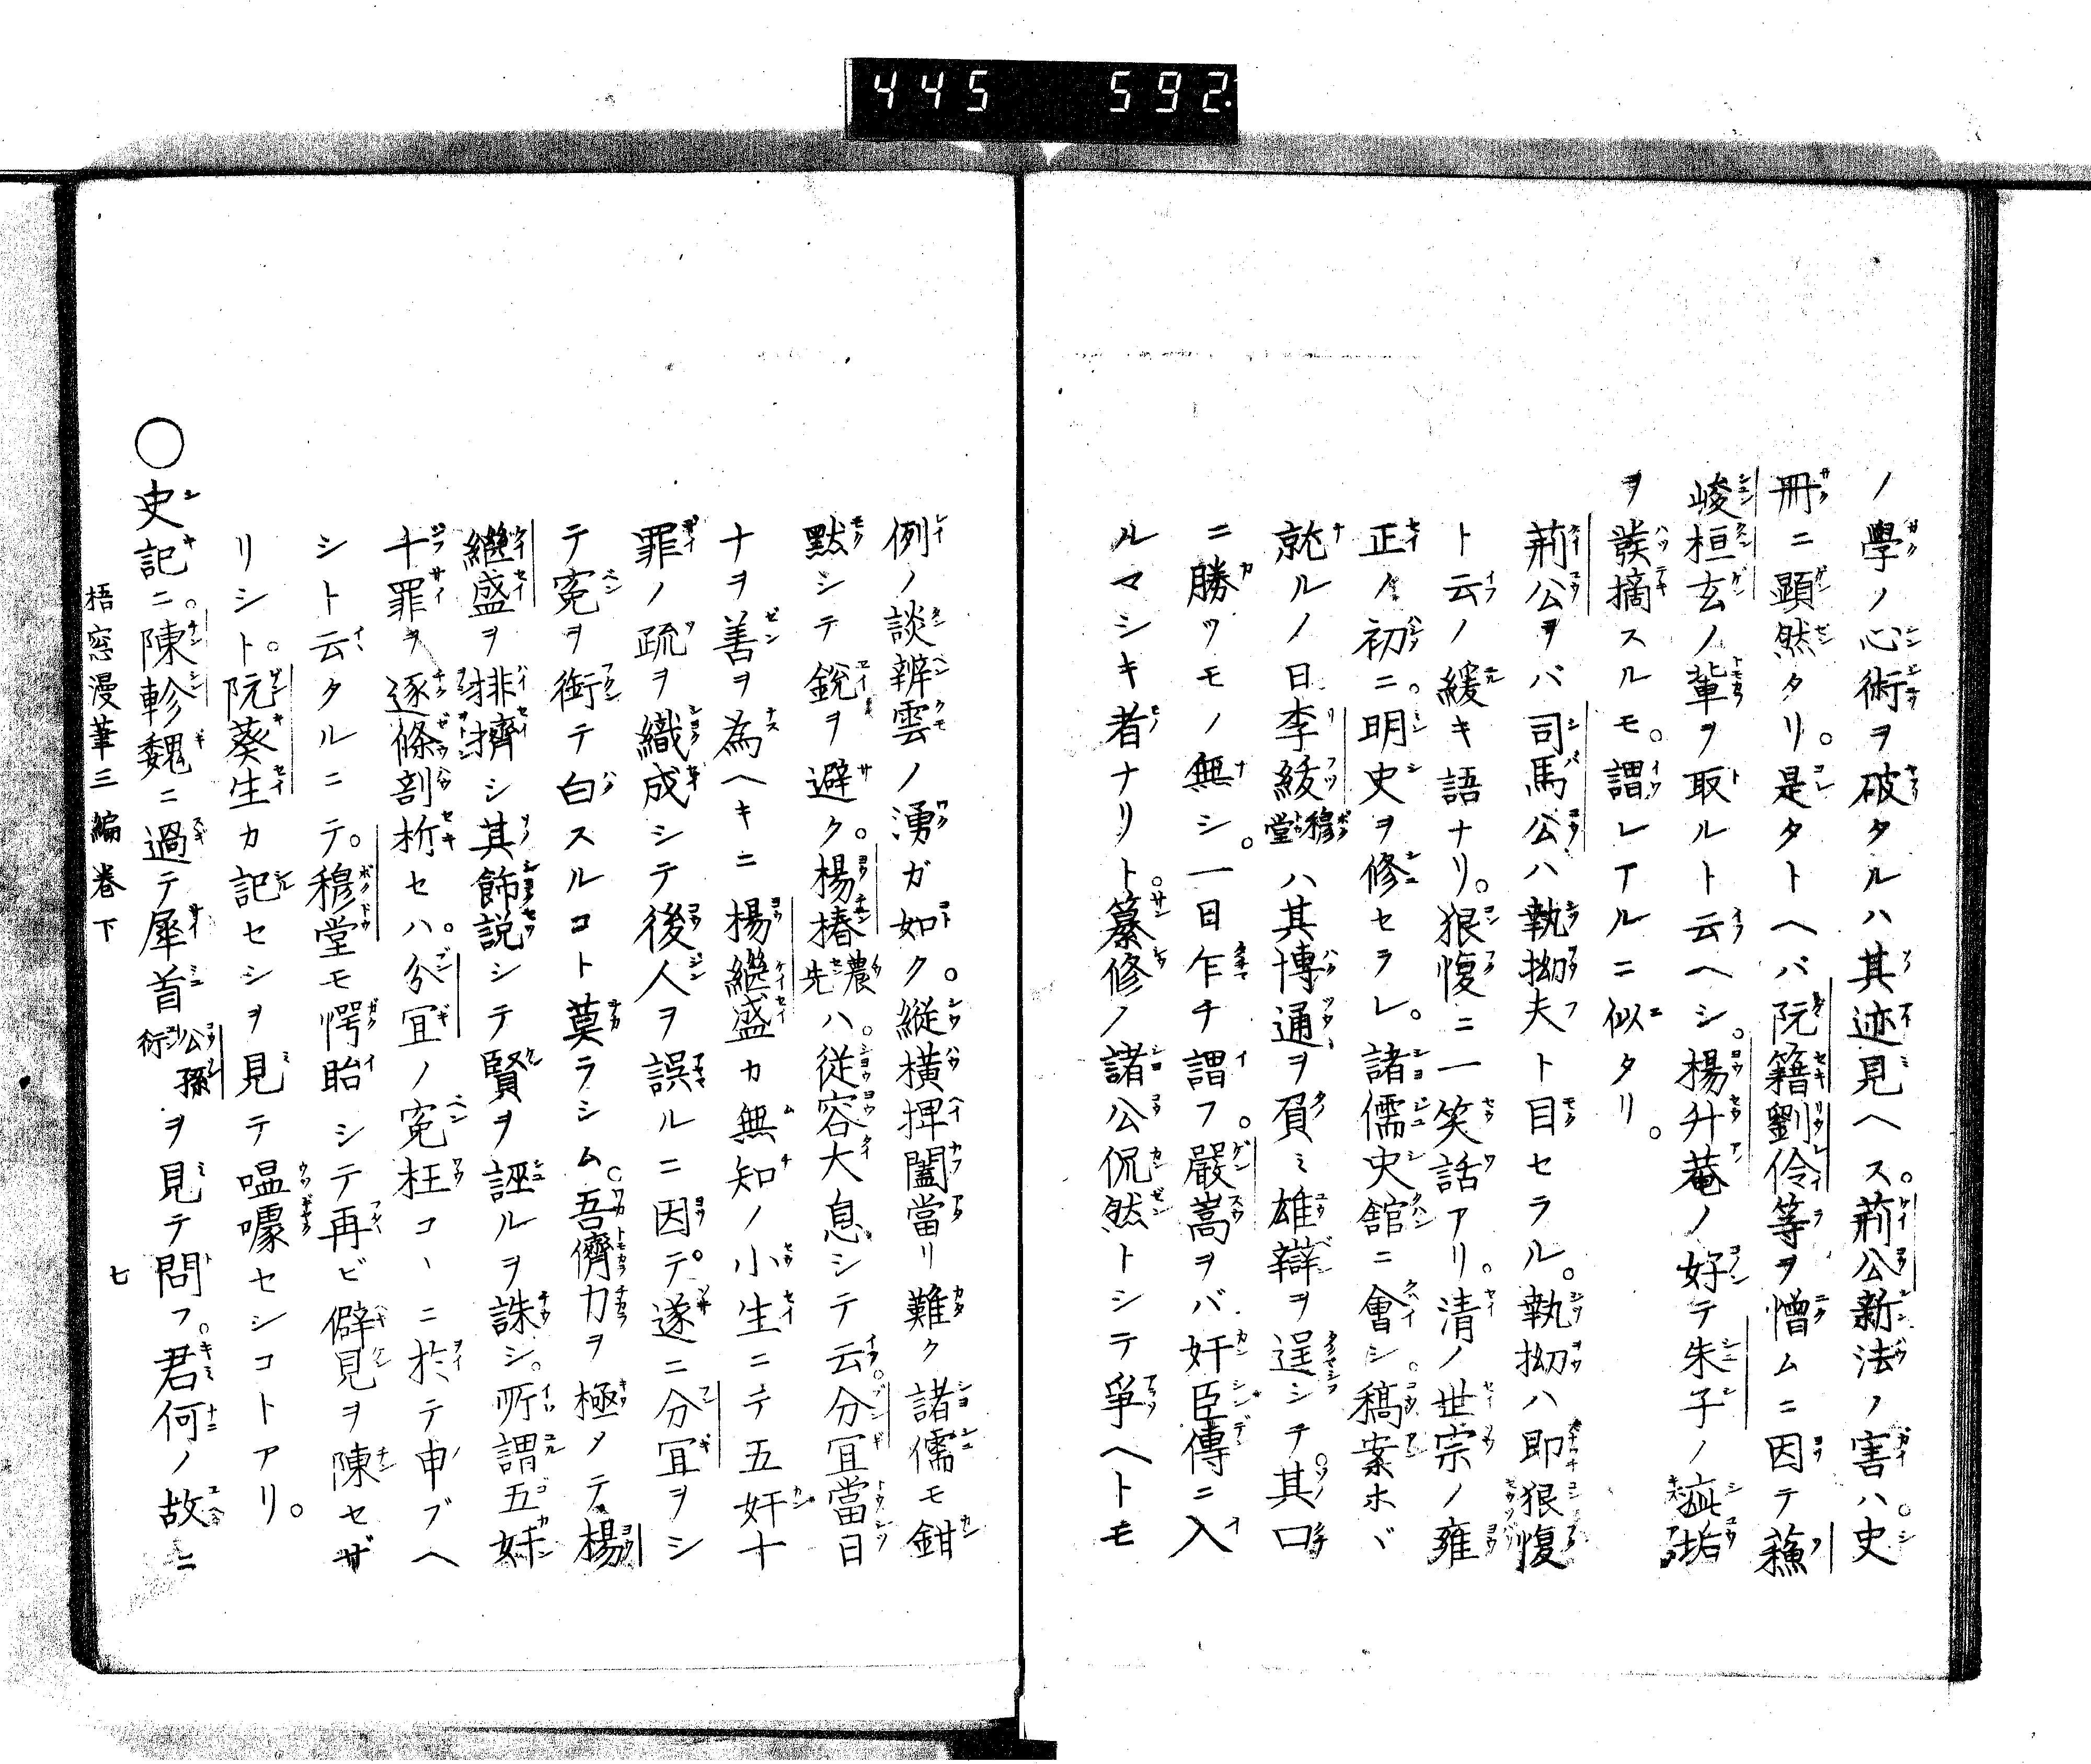 445 592
ノ學ノ心術ヲ破タルハ其迹見ヘス。荊公新法ノ害ハ。史
冊ニ顕然タリ。是タトヘバ阮籍劉伶等ヲ憎ムニ因テ蘓
峻桓玄ノ輩ヲ取ルト云ヘシ。楊升菴ノ好テ朱子ノ疵垢
ヲ發摘スルモ。謂レアルニ似タリ。
荊公ヲバ司馬公ハ執拗夫ト目セラル。執拗ハ即狠愎
ト云ノ緩キ語ナリ。狠愎ニ一笑話アリ。清ノ世宗ノ雍
正ノ初ニ。明史ヲ修セラレ。諸儒史舘ニ會シ。稿案ホヾ
就ルノ日李紱穆堂ハ其博通ヲ負ミ雄辯ヲ逞シテ。其口
ニ勝ツモノ無シ。一日乍チ謂フ。嚴嵩ヲバ奸臣傳ニ入
ルマシキ者ナリト。纂修ノ諸公侃然トシテ爭ヘトモ
例ノ談辨雲ノ湧ガ如ク。縱橫捭闔當リ難ク諸儒モ鉗
黙シテ銳ヲ避ク。楊椿農先ハ。從容大息シテ云。分宜當日
ナヲ善ヲ為ヘキニ楊繼盛カ無知ノ小生ニテ五奸十
罪ノ疏ヲ織成シテ後人ヲ誤ルニ因テ。遂ニ分宜ヲシ
テ寃ヲ銜テ白スルコト莫ラシム。吾儕力ヲ極メテ楊
繼盛ヲ排擠シ其飾説シテ賢ヲ誣ルヲ誅シ。所謂五奸
十罪ヲ逐條剖析セハ。分宜ノ寃枉コヽニ於テ申ブヘ
シト云タルニテ。穆堂モ愕眙シテ再ビ僻見ヲ陳セザ
リシト。阮葵生カ記セシヲ見テ嗢噱セシコトアリ。
○史記ニ。陳軫魏ニ過テ犀首公孫衍ヲ見テ問フ。君何ノ故ニ
梧窓漫筆三編卷下 七